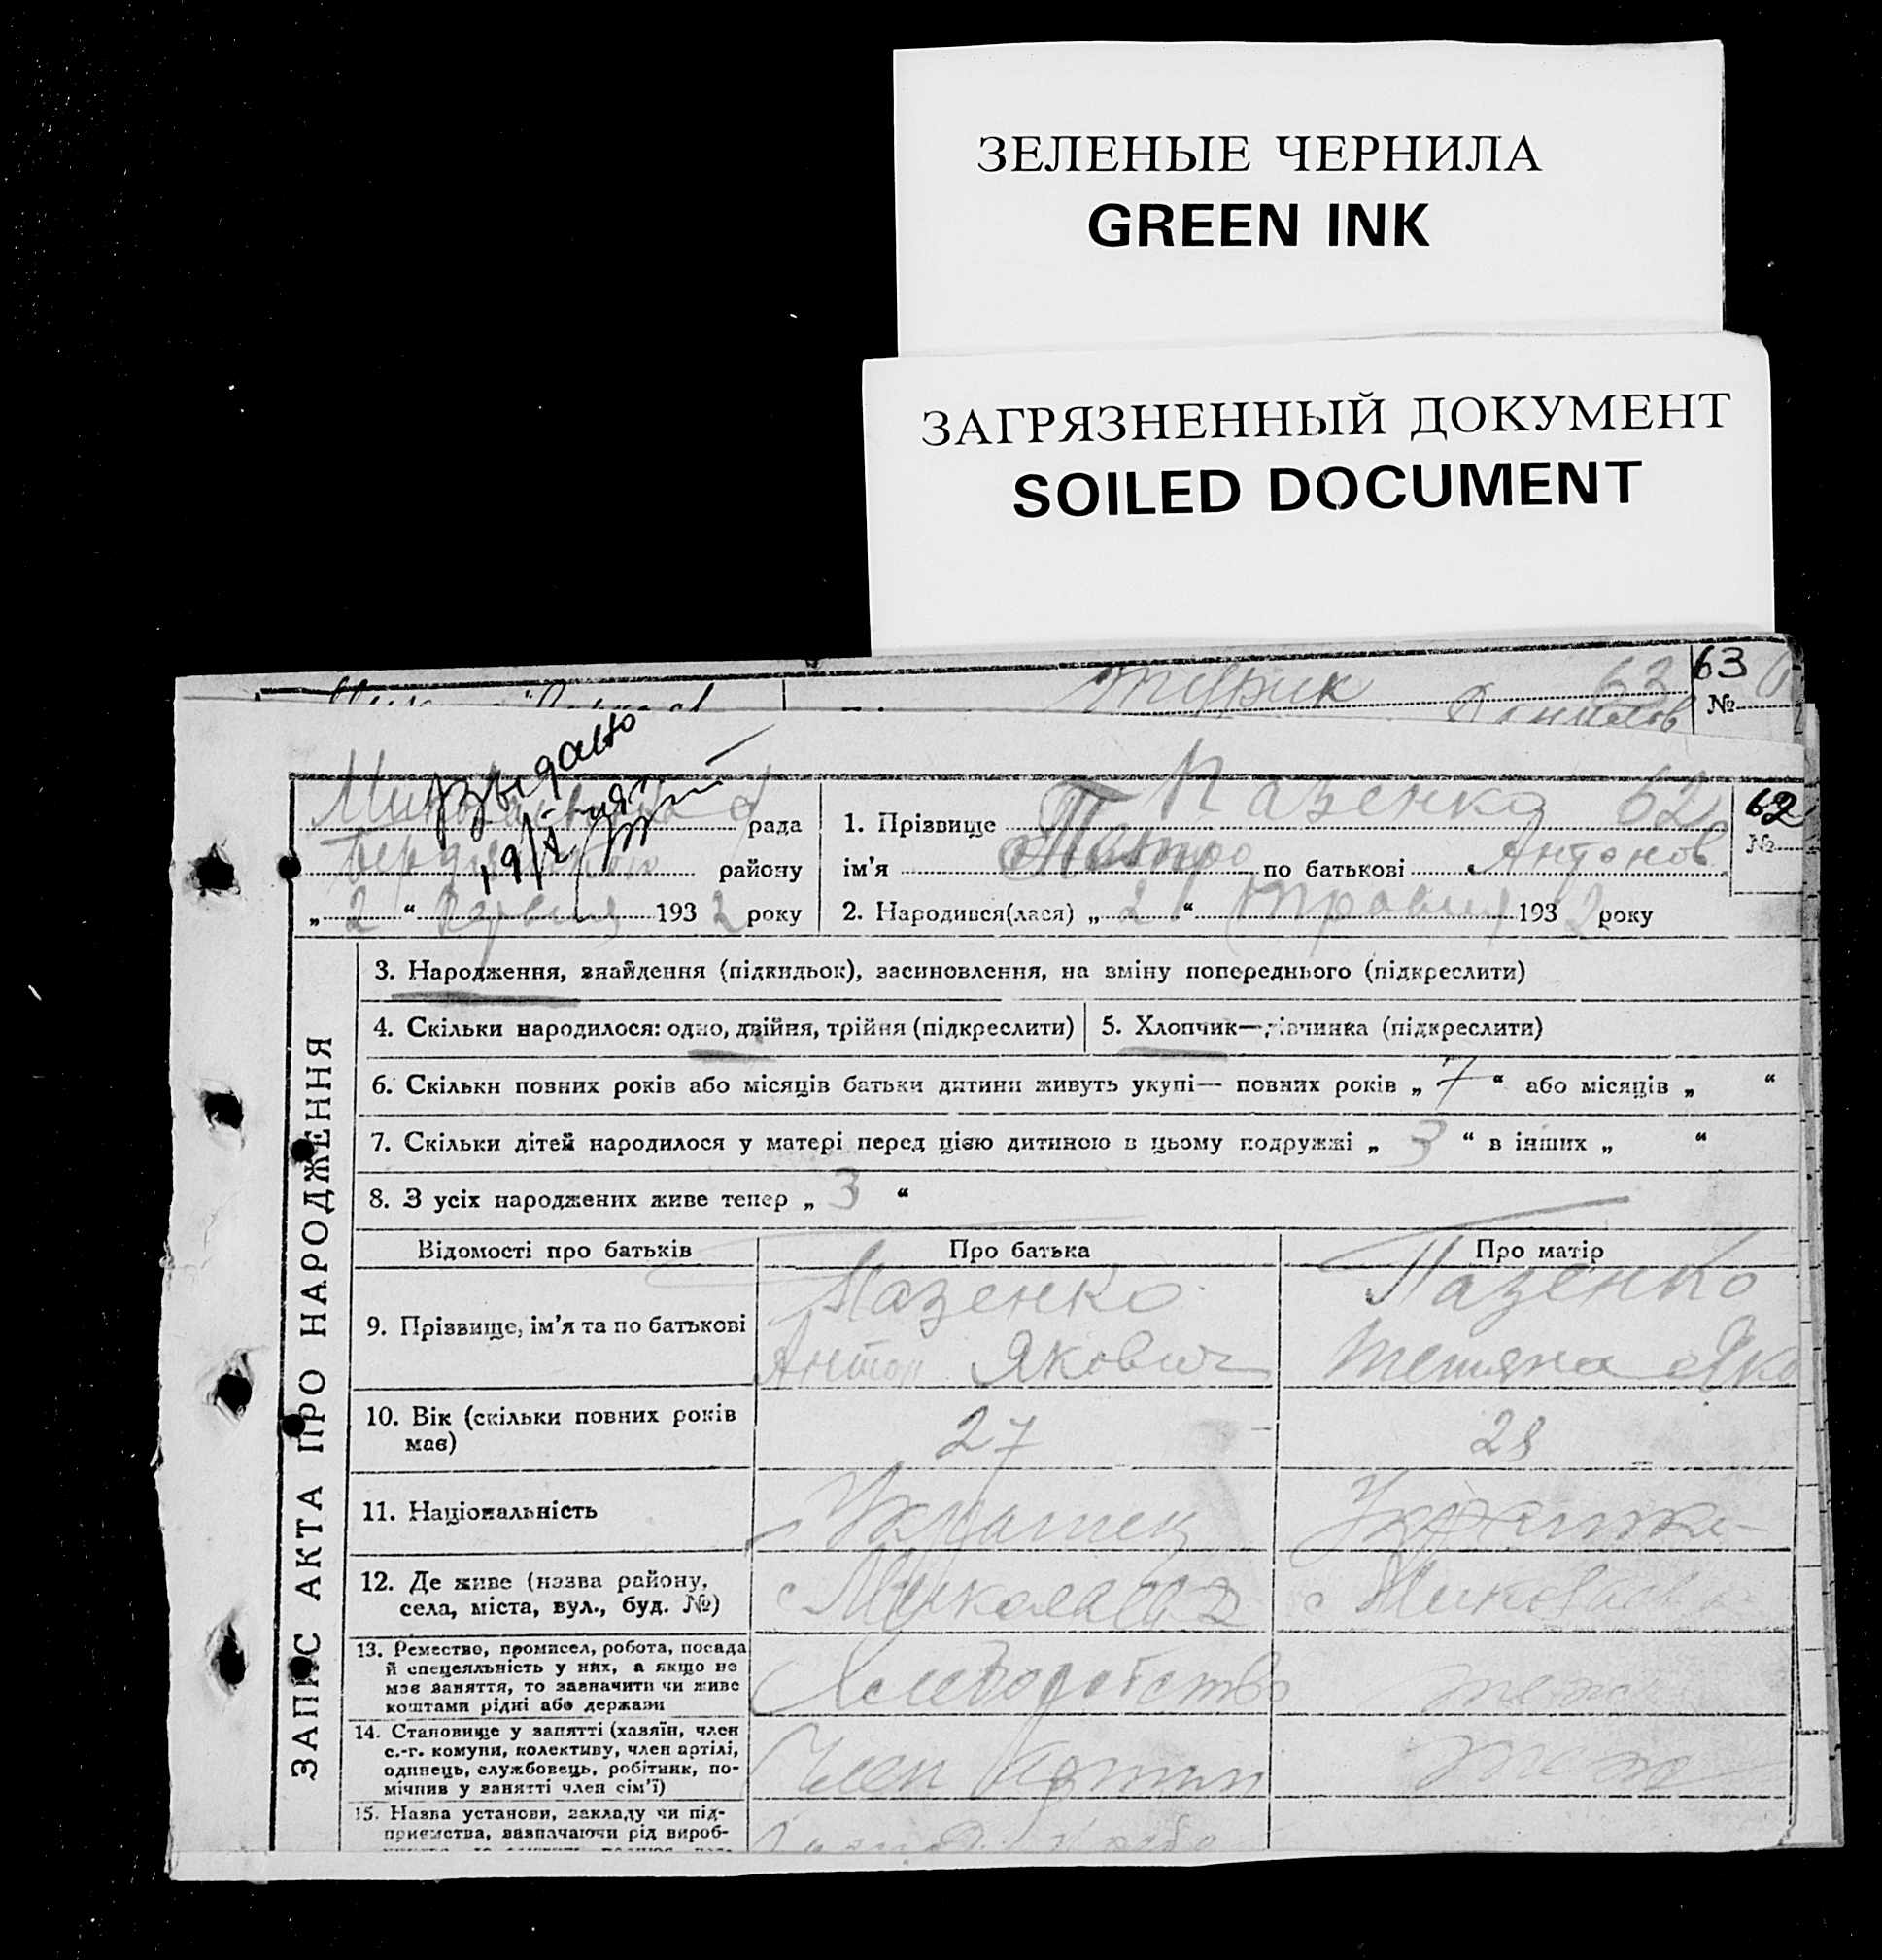 ЗЕЛЕНЫЕ ЧЕРНИЛА
GREEN INK
ЗАГРЯЗНЕННЫЙ ДОКУМЕНТ
SOILED DOCUMENT
63
63
№
62
рада
1. Прізвище Пазенко 62
№
району
ім'я Петро по батькові Антонов
„ 2 “ 1932 року
2. Народився(лася) „ 2 “ травня 1932 року
ЗАПИС АКТА ПРО НАРОДЖЕННЯ
3. Народження, знайдення (підкидьок), засиновлення, на зміну попереднього (підкреслити)
4. Скільки народилося: одно, двійня, трійня (підкреслити)
5. Хлопчик—дівчинка (підкреслити)
6. Скільки повних років або місяців батьки дитини живуть укупі— повних років „ 7 “ або місяців „ “
7. Скільки дітей народилося у матері перед цією дитиною в цьому подружжі „ 3 “ в інших „ “
8. З усіх народжених живе тепер „ 3 “
Відомості про батьків
Про батька
Про матір
9. Прізвище, ім'я та по батькові
Пазенко
Антон Якович
Пазенко
Тетяна Яко
10. Вік (скільки повних років
має)
27
28
11. Національність
Українец
Українка
12. Де живе (назва району,
села, міста, вул., буд. №)
Миколаївка
Миколаївка
13. Ремество, промисел, робота, посада
й спецеяльність у них, а якщо не
має заняття, то зазначити чи живе
коштами рідні або держави
Хлеборобство
теж
14. Становище у занятті (хазяїн, член
с.-г. комуни, колективу, член артілі,
одинець, службовець, робітник, по-
мічник у занятті член сім'ї)
Член Артіли
теж
15. Назва установи, закладу чи під-
приємства, зазначаючи рід вироб-